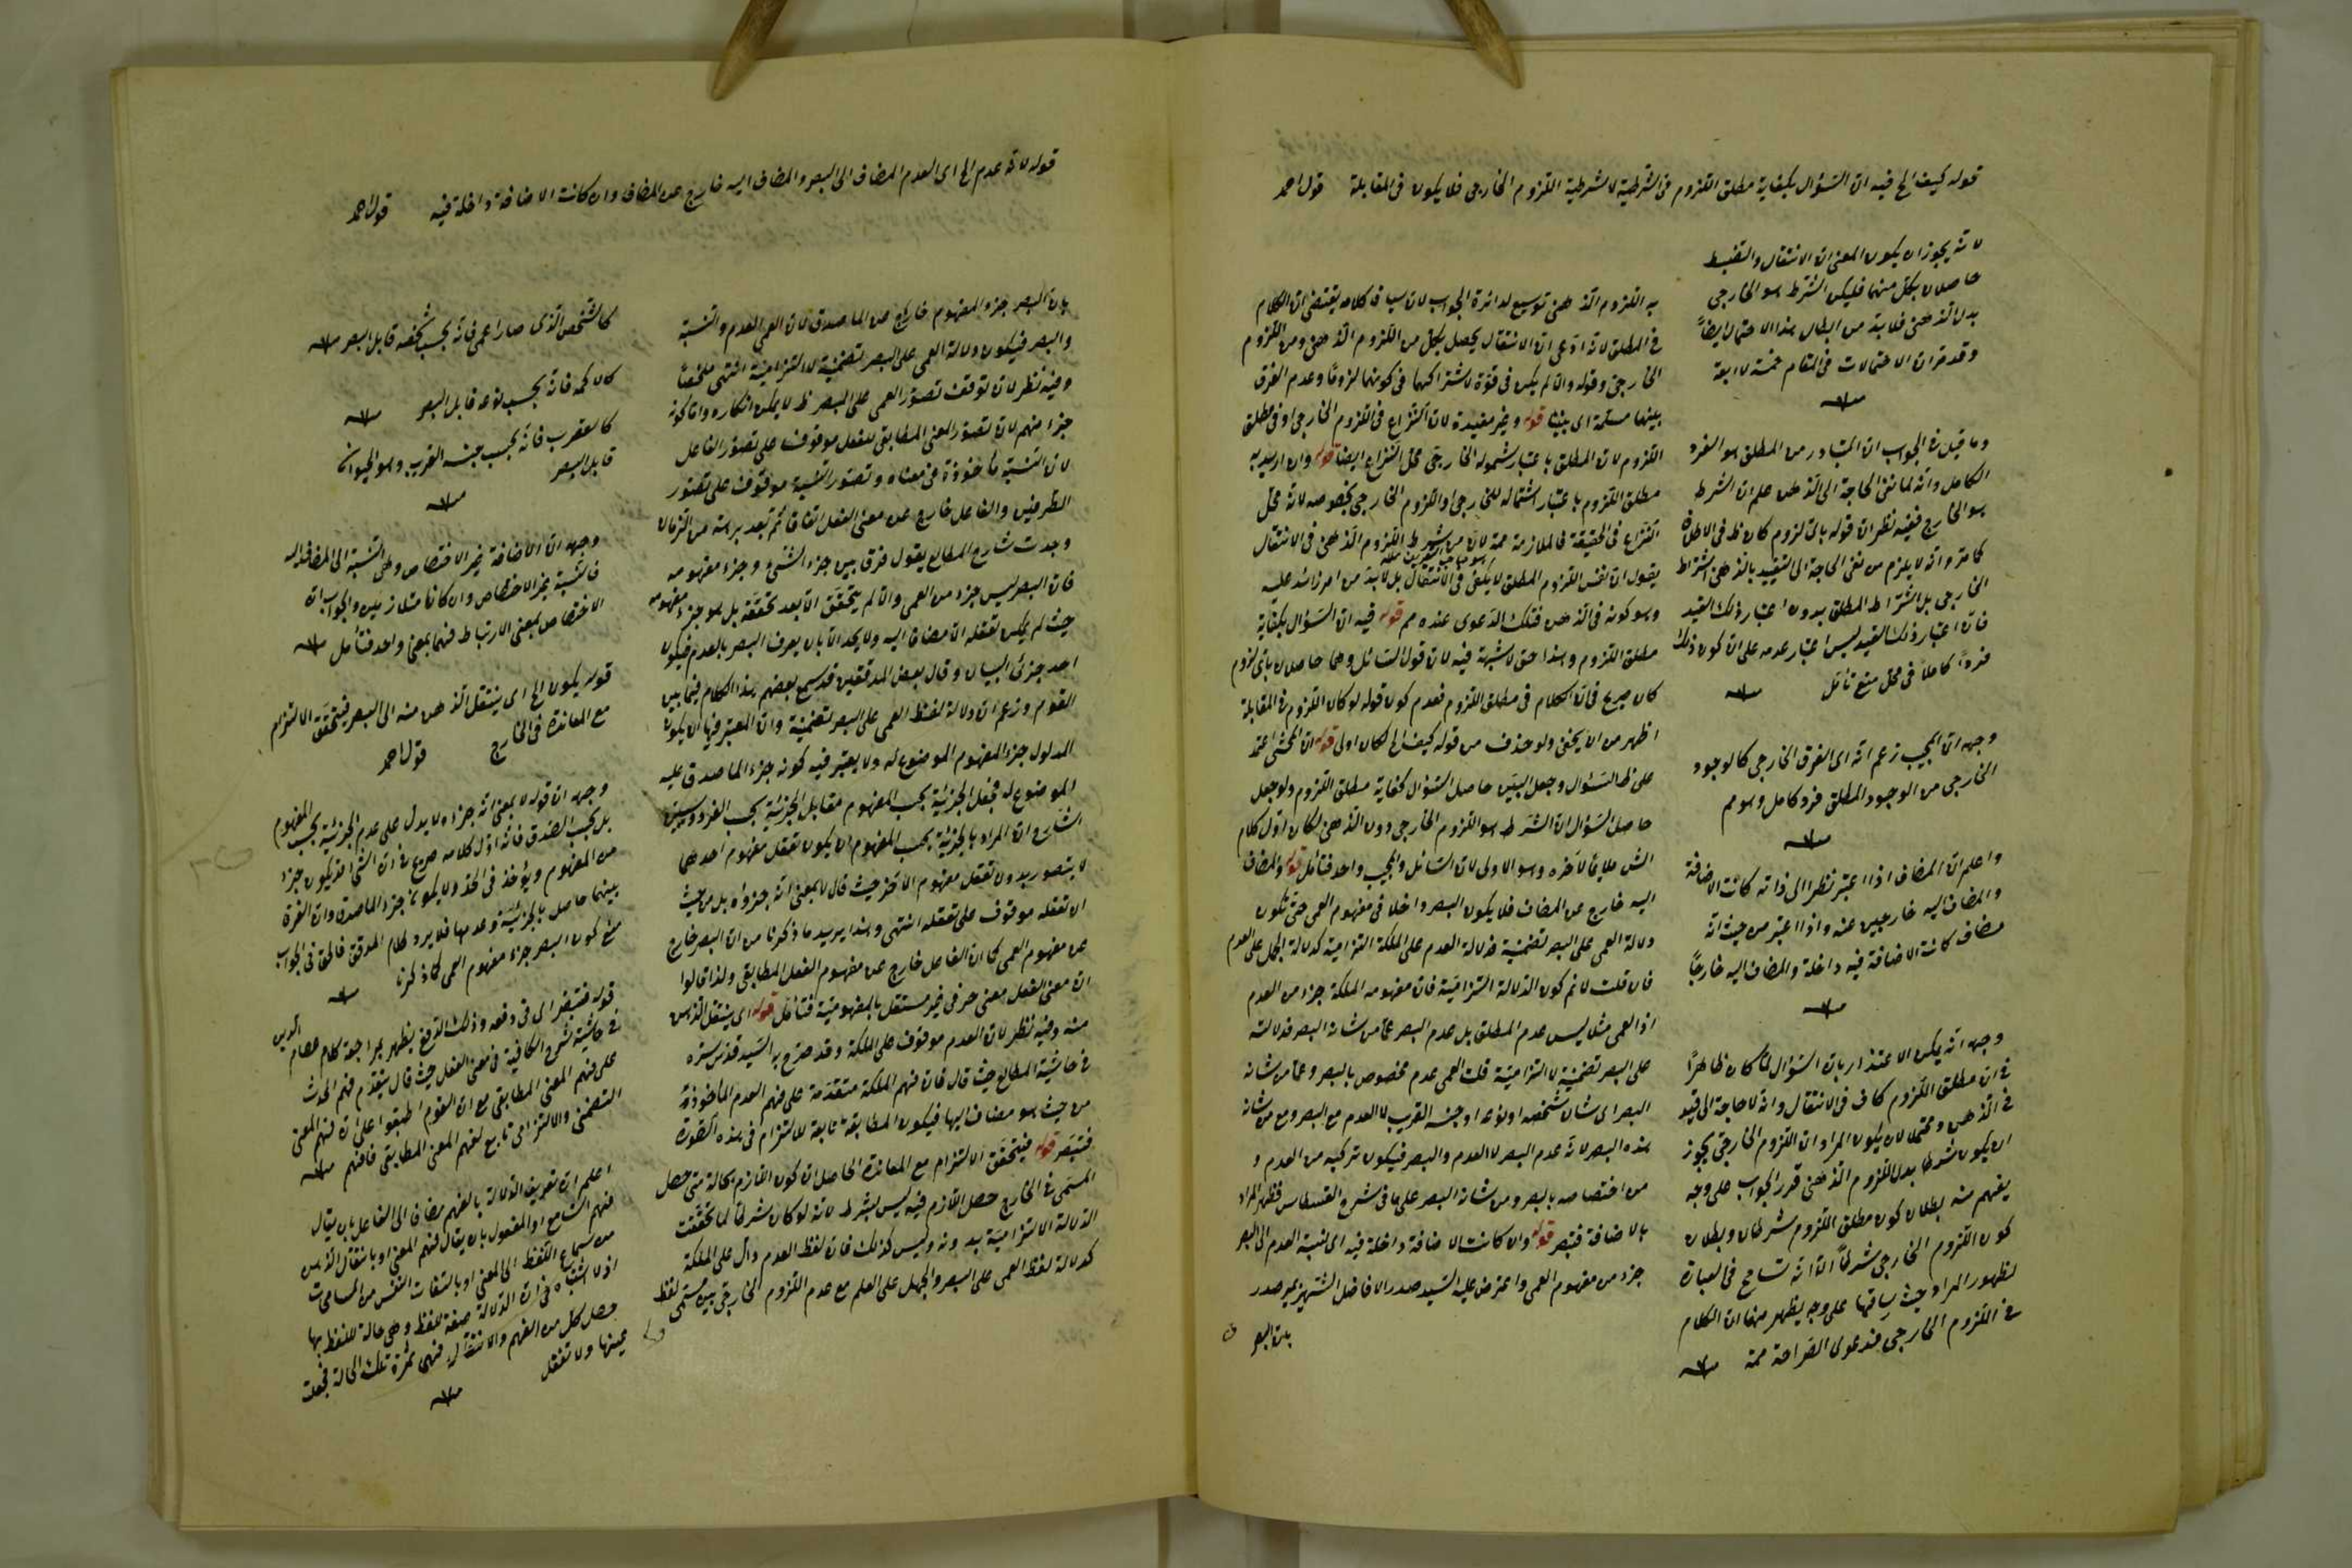 قوله كيف الخ فيه ان السؤال بكفاية مطلق اللزوم في الشرطية لا شرطية اللزوم الخارجي فلا يكون في المقابلة قول احمد
لانه يجوز ان يكون المعنى ان الانتقال والضبط
حاصلان بكل منهما فليكن الشرط هو الخارجي
بدل الذهني فلا بد من ابطال هذا الاحتمال ايضاً
وقد مر ان الاحتمالات في المقام خمسة لا اربعة
منه
وما قيل في الجواب ان المتبادر من المطلق هو الفرد
الكامل وانه لما نفى الحاجة الى الذهن علم ان الشرط
هو الخارج ففيه نظر ان قوله باى لزوم كان ظ في الاطلاق
كما مر وانه لا يلزم من نفي الحاجة الى التقييد بالذهني اشتراط
الخارجي بل اشتراط المطلق بدون اعتبار ذلك القيد
فان اعتبار ذلك القيد ليس اعتبار عدمه على ان كون ذلك
فرداً كاملاً في محل منع تأمل
منه
وجهه ان المجيب زعم انه اى الفرق الخارجي كالوجود
الخارجي من الوجود المطلق فرد كامل وهو مم
منه
واعلم ان المضاف اذا اعتبر نظرا الى ذاته كانت الاضافة
والمضاف اليه خارجين عنه واذا اعتبر من حيث انه
مضاف كانت الاضافة فيه داخلة والمضاف اليه خارجاً
منه
وجهه انه يمكن الاعتذار بان السؤال لما كان ظاهرًا
في ان مطلق اللزوم كاف في الانتقال وانه لا حاجة الى قيد
في الذهن ومحتملا لان يكون المراد ان اللزوم الخارجي يجوز
ان يكون شرطا بدل اللزوم الذهني قرر الجواب على وجه
يفهم منه بطلان كون مطلق اللزوم شرطا وبطلان
كون اللزوم الخارجي شرطاً الا انه تسامح في العبارة
لظهور المراد حيث ساقها على وجه يظهر منها ان الكلام
في اللزوم الخارجي فدعوى الصراحة ممة
منه
به اللزوم الذهني توسيع لدائرة الجواب لان سياق كلامه يقتضي ان الكلام
في المطلق لانه ادعى ان الانتقال يحصل بكل من اللزوم الذهني ومن اللزوم
الخارجي وقوله وان لم يكن في قوة لاشتراكهما في كونهما لزوماً وعدم الفرق
بينهما مسلمة اى بيننا قوله وغير مفيدة لان النزاع في اللزوم الخارجي او في مطلق
اللزوم لان المطلق باعتبار شموله الخارجي محل النزاع ايضا قوله وان اريد به
مطلق اللزوم باعتبار اشتماله للخارجي او اللزوم الخارجي بخصوصه لانه محل
النزاع في الحقيقة فالملازمة ممة لان من شرط اللزوم الذهني في الانتقال
يقول ان نفس اللزوم المطلق لا يكفي في الانتقال بل لا بد من امر زائد عليه
وهو كونه في الذهن فتلك الدعوى عنده مم قوله فيه ان السؤال بكفاية
مطلق اللزوم وهذا حق لا شبهة فيه لان قول السائل وهما حاصلان باى لزوم
كان صريح في ان الكلام في مطلق اللزوم فعدم كون قوله لو كان اللزوم في المقابلة
اظهر من ان يخفى ولو حذف من قوله كيف الخ لكان اولى قوله ان المحشي اعتمد
على ظ السؤال وجعل البين حاصل السؤال كفاية مطلق اللزوم ولو جعل
حاصل السؤال ان الشرط هو اللزوم الخارجي دون الذهني لكان اول كلام
الش ملايما لآخره وهو الاولى لان السائل والمجيب واحد فتأمل قوله والمضاف
اليه خارج عن المضاف فلا يكون البصر داخلا في مفهوم العمى حتى تكون
دلالة العمى على البصر تضمنية فدلالة العدم على الملكة التزامية كدلالة الجهل على العلم
فان قلت لا نم كون الدلالة التزامية فان مفهومه الملكة جزء من العدم
اذ العمى مثلا ليس عدم المطلق بل عدم البصر عما من شانه البصر فدلالته
على البصر تضمنية لا التزامية قلت العمى عدم مخصوص بالبصر وعما من شانه
البصر اى شان شخصه او نوعه او جنسه القريب لا العدم مع البصر ومع من شانه
هذه البصر لانه عدم البصر لا العدم والبصر فيكون تركبه من العدم و
من اختصاصه بالبصر ومن شانه البصر على ما في شرح القسطاس فظهر المراد
بالاضافة فتبصر قوله وان كانت الاضافة داخلة فيه اى نسبة العدم الى البصر
جزء من مفهوم العمى واعترض عليه السيد صدر الافاضل الشهير بمير صدر
بان البصر
قوله لانه عدم الخ اى العدم المضاف الى البصر والمضاف اليه خارج عن المضاف وان كانت الاضافة داخلة فيه قول احمد
بان البصر جزء المفهوم خارج عن الماصدق لان العمى العدم والنسبة
والبصر فيكون دلالة العمى على البصر تضمنية لا التزامية انتهى ملخصاً
وفيه نظر لان توقف تصور العمى على البصر ظ لا يمكن انكاره واما كونه
جزءا منهم لان تصور المعنى المطابقي للفعل موقوف على تصور الفاعل
لان النسبة مأخوذة في معناه وتصور النسبة موقوف على تصور
الطرفين والفاعل خارج عن معنى الفعل اتفاقا ثم بعد برهة من الزمان
وجدت شارح المطالع يقول فرق بين جزء الشيء وجزء مفهومه
فان البصر ليس جزء من العمى والا لم يتحقق الا بعد تحققه بل هو جزء مفهومه
حيث لم يمكن تعقله الا مضافا اليه ولا يحد الا بان يعرف البصر بالعدم فيكون
احد جزئى البيان وقال بعض المدققين قد سمع بعضهم هذا الكلام فيما بين
القوم وزعم ان دلالة لفظ العمى على البصر تضمنية وان المعتبر فيها ان يكون
المدلول جزء المفهوم الموضوع له ولا يعتبر فيه كونه جزء الماصدق عليه
الموضوع له فجعل الجزئية بحسب المفهوم مقابل الجزئية بحسب الفرد وسيتبين
الشارح ان المراد بالجزئية بحسب المفهوم ان يكون تعقل مفهوم احدهما
لا يتصور بدون تعقل مفهوم الآخر حيث قال لا بمعنى انه جزؤه بل من حيث
ان تعقله موقوف على تعقله انتهى وهذا يريد ما ذكرنا من ان البصر خارج
عن مفهوم العمى كما ان الفاعل خارج عن مفهوم الفعل المطابقي ولذا قالوا
ان معنى الفعل معنى حرفي غير مستقل بالمفهومية فتأمل قوله اى ينتقل الذهن
منه وفيه نظر لان العدم موقوف على الملكة وقد صرح به السيد قدس سره
في حاشية المطالع حيث قال فان فهم الملكة متقدمة على فهم العدم المأخوذة
من حيث هو مضاف اليها فيكون المطابقة تابعة للالتزام في هذه الصورة
فتبصر قوله فيتحقق الالتزام مع المعاندة الحاصل ان كون اللازم بحالة متى حصل
المسمى في الخارج حصل اللازم فيه ليس بشرط لانه لو كان شرطاً لما تحققت
الدلالة الالتزامية بدونه وليس كذلك فان لفظ العدم دال على الملكة
كدلالة لفظ العمى على البصر والجهل على العلم مع عدم اللزوم الخارجي بين مسمى لفظ
كالشخص الذى صار اعمى فانه بحسب شخصه قابل البصر منه
كالاكمه فانه بحسب نوعه قابل البصر
منه
كالعقرب فانه بحسب جنسه القريب وهو الحيوان
قابل البصر
منه
وجهه ان الاضافة غير الاختصاص وهى النسبة الى المضاف اليه
فالنسبة غير الاختصاص وان كانا متلازمين والجواب ان
الاختصاص بمعنى الارتباط فهما بمعنى واحد فتأمل منه
قوله يكون الخ اى ينتقل الذهن منه الى البصر فيتحقق الالتزام
مع المعاندة في الخارج قول احمد
وجهه ان قوله لا بمعنى انه جزءه لا يدل على عدم الجزئية بحسب المفهوم
بل بحسب الصدق فانه اول كلامه صريح في ان الشئ قد يكون جزء
من المفهوم ويؤخذ في الحد ولا يكون جزء الماصدق وان الفرق
بينهما حاصل بالجزئية وعدمها فلا يرد كلام المدقق فالحق في الجواب
منع كون البصر جزء مفهوم العمى كما ذكرنا
منه
قوله فتبصر اى في دفعه وذلك الدفع يظهر بمراجعة كلام عصام الدين
في حاشية شرح الكافية في معنى الفعل حيث قال يتقدم فهم الحدث
على فهم المعنى المطابقي مع ان القوم اطبقوا على ان فهم المعنى
التضمني والالتزامى تابع لفهم المعنى المطابقي فافهم منه
اعلم ان تعريف الدلالة بالفهم مضاف الى الفاعل بان يقال
فهم السامع او المفعول بان يقال فهم المعنى او بانتقال الذهن
من سماع اللفظ الى المعنى او بالتفات النفس من المسامحات
اذ لا اشتباه في ان الدلالة صفة للفظ وهى حالة للفظ بها
حصل كل من الفهم والانتقال فهى ثمرة تلك الحالة فجعلت
عينها ولا تغفل
منه